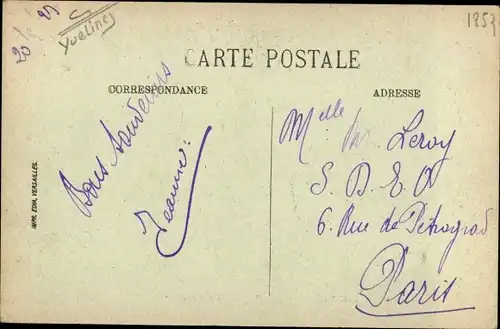 20/9 25
Yvelines
1853
CARTE POSTALE
CORRESPONDANCE
ADRESSE
Bons Souvenirs
Jeanne.
Melle M. Leroy
S. D. E. O
6 Rue de Pétrograd
Paris
IMP. EDIA, VERSAILLES.